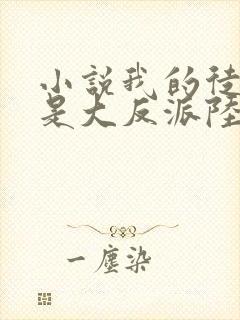 小說我的徒
是大反派陸
一塵染